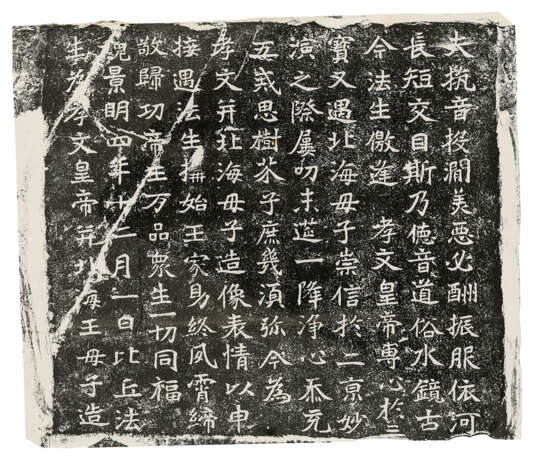 夫抗音投澗美惡必酬振服依河
長短交目斯乃德音道俗水鏡古
今法生儌逢 孝文皇帝專心於三
寶又遇北海母子崇信於二京妙
演之際屢叨末筵一降淨心忝充
五戒思樹芥子庶幾須彌今為
孝文并北海母子造像表情以申
接遇法生構始王家易終夙霄締
敬歸功帝王万品眾生一切同福
魏景明四年十二月一日比丘法
生為孝文皇帝并北海王母子造